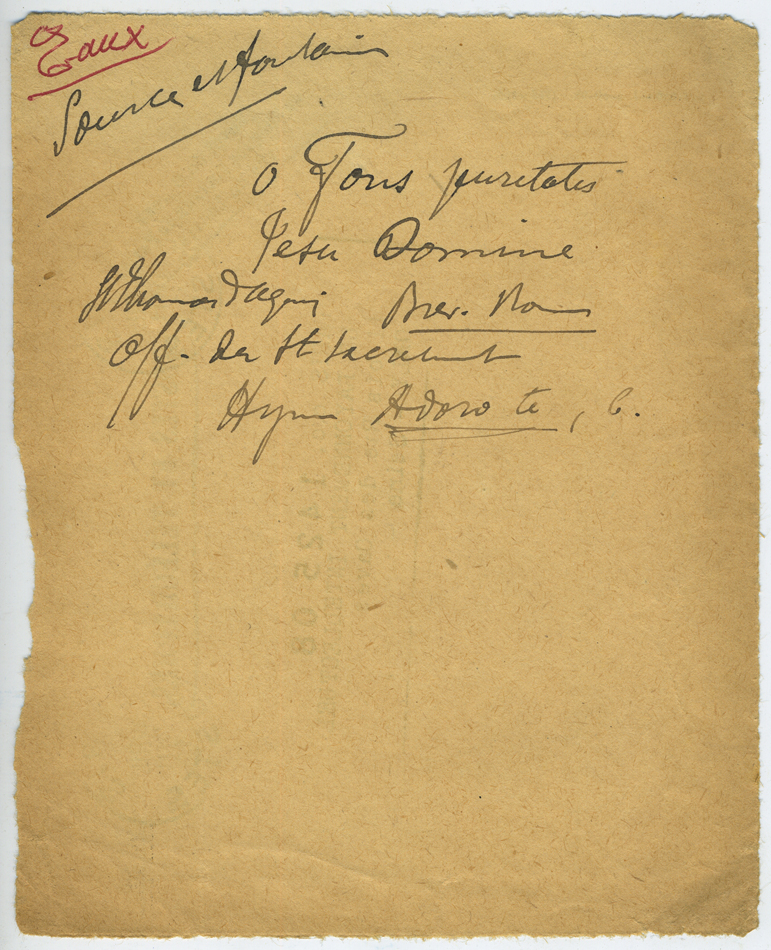 Eaux
Source et fontaine
O Fons puritatis
Jesu Domine
St Thomas d'Aquin Brev. Rom
Off. du St Sacrement
Hymn Adoro te, 6.